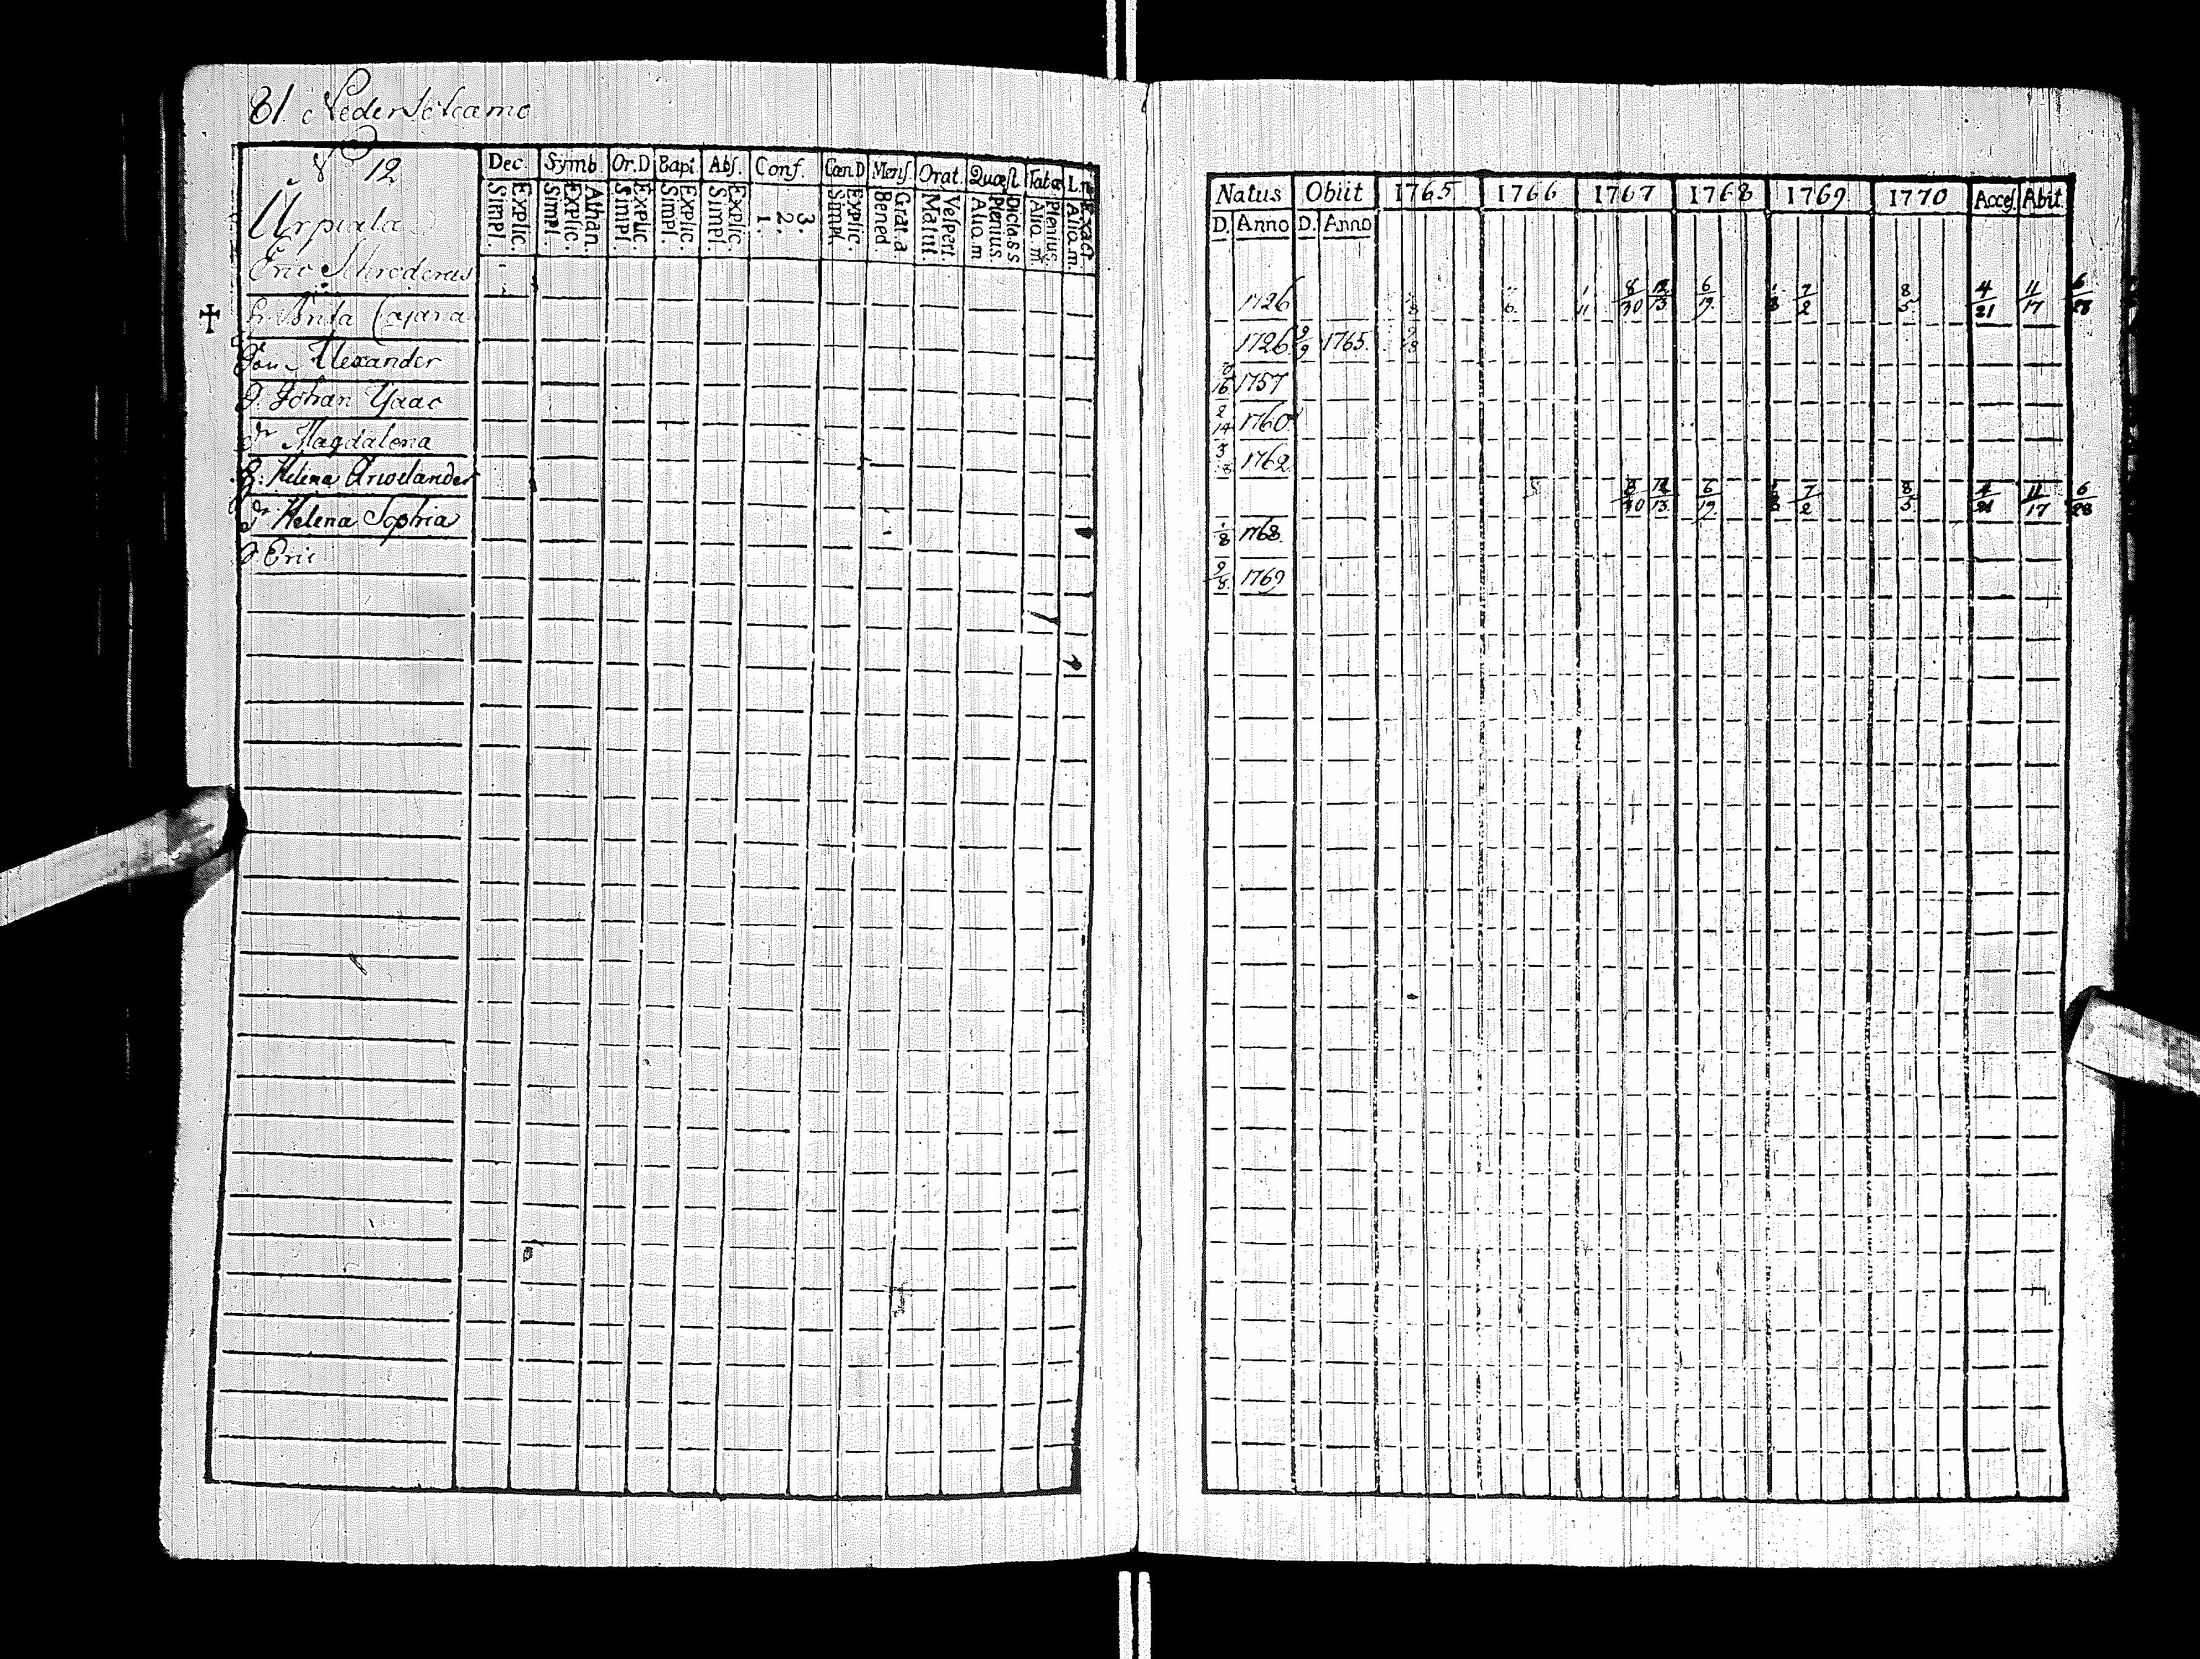 81 Nederstkamo
12
Urpiala
Eric Schroderus
Fr. Brita Cajana
Son Alexander
S. Johan Ysaac
dr Magdalena
H. Helena Arwelander
dr Helena Sophia
S. Eric
Dec. Symb Or.D Bapt Abs. Conf. Cœn D Mens. Orat. Quæst. Tabæ L.n
Explic. Simpl. Athan. Explic. Simpl. Explic. Simpl. Explic. Simpl. Explic. Simpl. 3. 2. 1. Explic. Simpl. Grat. a Bened Vespert. Matut. Dicta s.s Plenius. Aliq.m Plenius. Aliq.m Exact. Aliq.m.
Natus Obiit 1765 1766 1767 1768 1769 1770 Acces. Abit.
D. Anno D. Anno
1726 8/30 12/13 6/19 7/2 8/5 4/21 11/17 6/28
1726 9/9 1765.
16 1757
2/14 1760
3/8 1762.
8/30 12/13 6/19 7/2 8/5 4/21 11/17 6/28
1/8 1768
9/8 1769